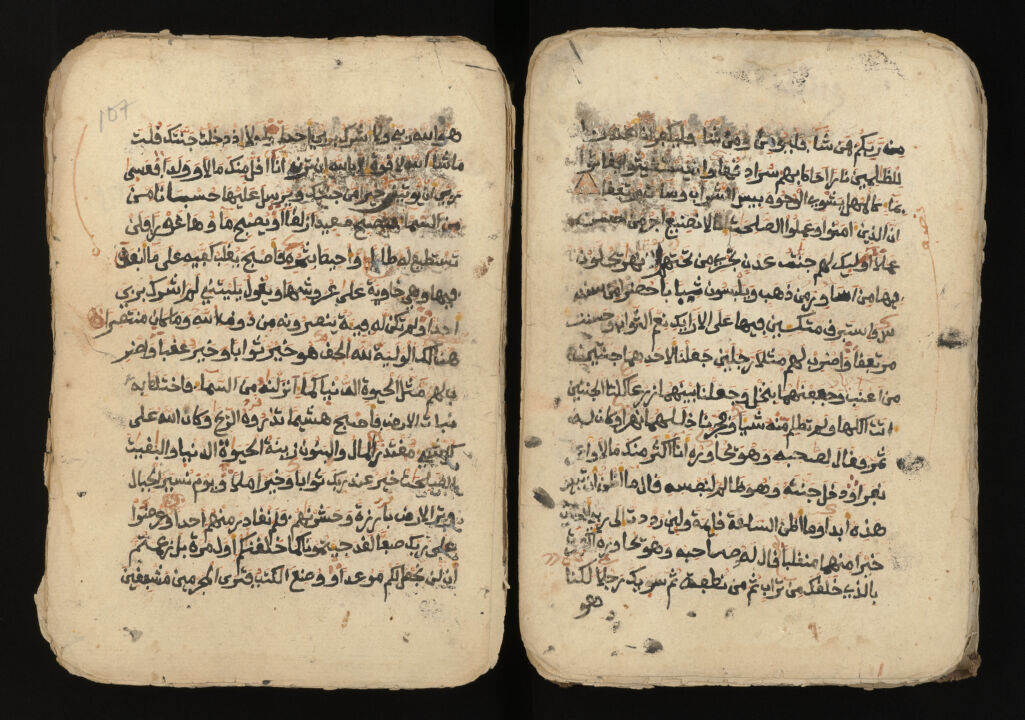 من ربكم فمن شا فليومن ومن شا فليكفر انا اعتدنا
للظلمين نارا احاط بهم سرادقها وان يستغيثوا يغاثوا
بما كالمهل يشوي الوجوه بيس الشراب وساءت مرتفقا
ان الذين امنوا وعملوا الصلحت انا لا نضيع اجر من احسن
عملا اوليك لهم جنت عدن تجري من تحتهم الانهر يحلون
فيها من اساور من ذهب ويلبسون ثيابا خضرا من سندس
واستبرق متكين فيها على الارايك نعم الثواب وحسنت
مرتفقا واضرب لهم مثلا رجلين جعلنا لاحدهما جنتين
من اعنب وحففنهما بنخل وجعلنا بينهما زرعا كلتا الجنتين
اتت اكلها ولم تظلم منه شيا وفجرنا خللهما نهرا وكان له
ثمر وفال لصحبه وهو يحاوره انا اكثر منك مالا واعز
نفرا ودخل جنته وهو ظالم لنفسه فال ما اظن ان تبيد
هذه ابدا وما اظن الساعة فايمة ولين رددت الى ربي لاجدن
خيرا منهما منقلبا فال له صاحبه وهو يحاوره اكفرت
بالذي خلفك من تراب ثم من نطفة ثم سويك رجلا لكنا
هو
107
هو الله ربي ولا اشرك بربي احدا ولولا اذ دخلت جنتك فلت
ما شا الله لا فوة الا بالله ان ترن انا افل منك مالا وولدا فعسى
ربي ان يوتين خيرا من جنتك ويرسل عليها حسبانا من
السما فتصبح صعيدا زلفا او يصبح ماوها غورا فلن
تستطيع له طلبا واحيط بثمره فاصبح يفلب كفيه على ما انفق
فيها وهي خاوية على عروشها ويفول يليتني لم اشرك بربي
احدا ولم تكن له فية ينصرونه من دون الله وما كان منتصرا
هنالك الولية لله الحف هو خير ثوابا وخير عفبا واضرب
لهم مثل الحيوة الدنيا كما انزلنه من السما فاختلط به
نبات الارض فاصبح هشيما تذروه الريح وكان الله على
كل شي مفتدرا المال والبنون زينة الحيوة الدنيا والبفيت
الصلحت خير عند ربك ثوابا وخير املا ويوم نسير الجبال
وترى الارض بارزة وحشرنهم فلم نغادر منهم احدا وعرضوا
على ربك صفا لفد جيتمونا كما خلفنكم اول مرة بل زعمتم
ان لن نجعل لكم موعدا ووضع الكتب فترى المجرمين مشفقين